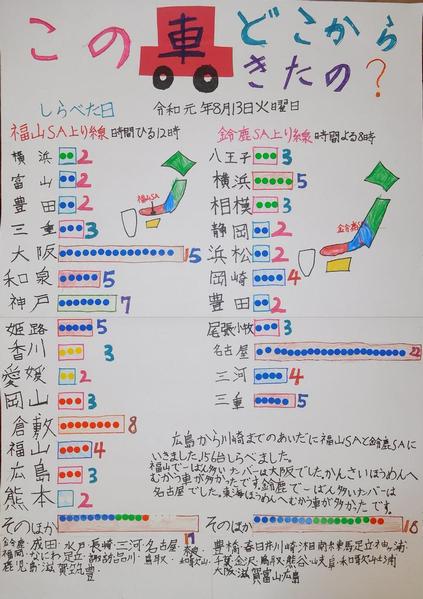 この車どこからきたの?
しらべた日 令和元年8月13日火曜日
福山SA上り線 時間ひる12時
横浜 2
富山 2
豊田 2
三重 3
大阪 15
和泉 5
神戸 7
姫路 5
香川 3
愛媛 2
岡山 3
倉敷 8
福山 4
広島 3
熊本 2
そのほか 17
福山SA
鈴鹿SA上り線 時間よる8時
八王子 3
横浜 5
相模 3
静岡 2
浜松 2
岡崎 4
豊田 2
尾張小牧 3
名古屋 22
三河 4
三重 5
そのほか 18
広島から川崎までのあいだに福山SAと鈴鹿SAに
いきました。156台しらべました。
福山で一ばん多いナンバーは大阪でした。かんさいほうめんへ
むかう車が多かったです。鈴鹿で一ばん多いナンバーは
名古屋でした。東海ほうめんへむかう車が多かったです。
成田・水戸・長崎・三河・名古屋
福岡・なにわ・足立・諏訪・品川・鳥取
鹿児島・滋賀・筑豊
豊橋・春日井・川崎・湘南・練馬・足立・袖ヶ浦
千葉・金沢・鳥取・熊谷
大阪・滋賀・富山・広島